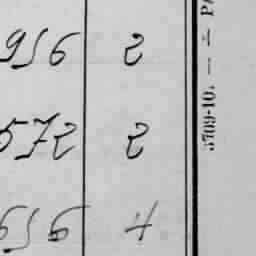 956 2
572 2
656 4
5709-10. — 1 — P